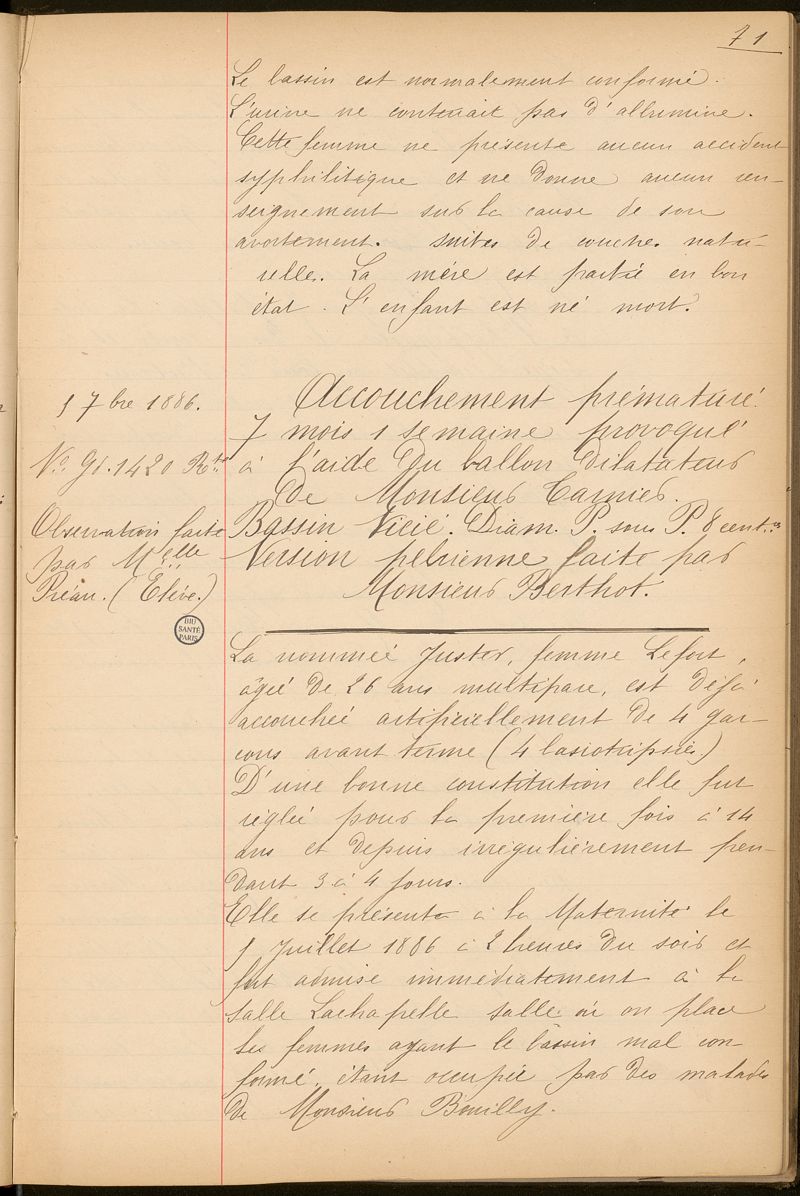 71
Le bassin est normalement conformé.
L'urine ne contenait pas d'albumine.
Cette femme ne présente aucun accident
syphilitique et ne donne aucun ren-
seignement sur la cause de son
avortement. suites de couches natu-
relles. La mère est partie en bon
état. L'enfant est né mort.
5 7bre 1886.
No. Gl. 1420 Rts
Observation faite
par Melle
Préau. (Elève.)
Accouchement prématuré
7 mois 1 semaine provoqué
à l'aide du ballon dilatateur
de Monsieur Tarnier.
Bassin Vicié. Diam. P. sous P. 8 cent.
Version pelvienne faite par
Monsieur Berthot.
BIU
SANTÉ
PARIS
La nommée Juster, femme Lefort,
âgée de 26 ans multipare, est déjà
accouchée artificiellement de 4 gar-
cons avant terme (4 basiotripsies)
D'une bonne constitution elle fut
réglée pour la première fois à 14
ans et depuis irrégulièrement pen-
dant 3 à 4 jours.
Elle se présente à la Maternité le
5 Juillet 1886 à 2 heures du soir et
fut admise immédiatement à la
salle Lachapelle salle où on place
les femmes ayant le bassin mal con-
formé, étant occupée par des malades
de Monsieur Bouilly.